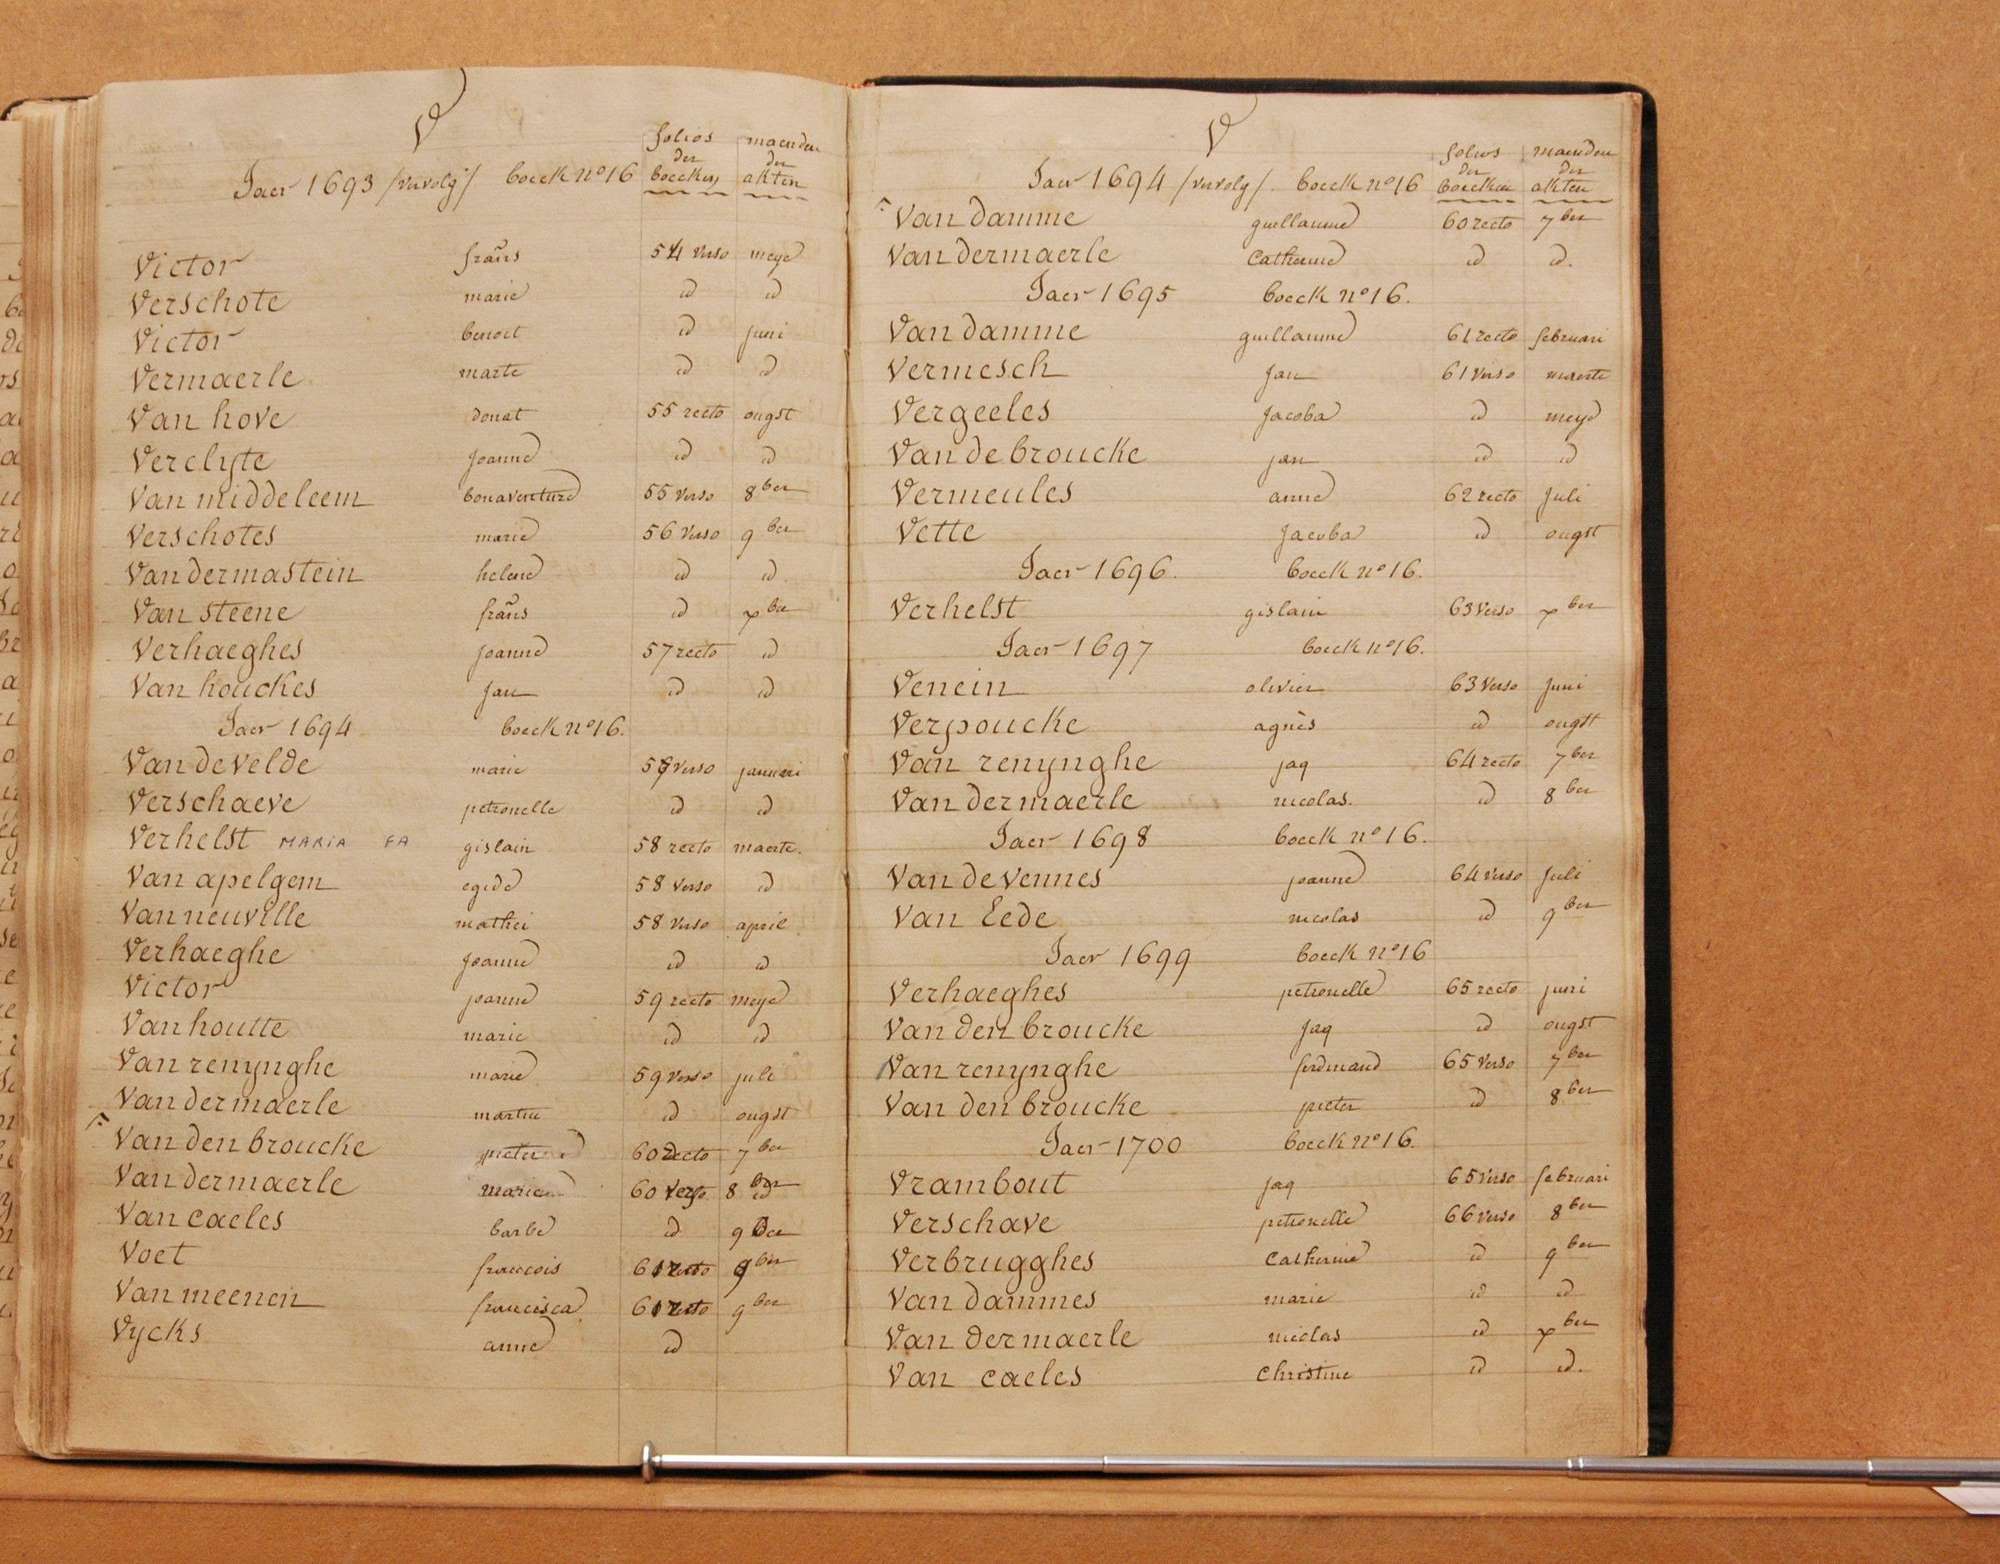 V
folios maenden
der der
Jaer 1693 /vervolg/ boeck nº 16 boecken akten
Victor frañs 54 verso meye
Verschote marie id id
Victor benoit id juni
Vermaerle marte id id
Van hove donat 55 recto ougst
Verclyte joanne id id
Van middeleem bonaventure 55 verso 8ber
Verschotes marie 56 verso 9ber
Van dermastein helene id id
Van steene frañs id xber
Verhaeghes joanne 57 recto id
Van houckes jan id id
Jaer 1694 boeck nº 16.
Van de velde marie 57 verso januari
Verschaeve petronelle id id
Verhelst MARIA FA gislain 58 recto maerte.
Van apelgem egide 58 verso id
Van neuville mathei 58 verso april
Verhaeghe joanne id id
Victor joanne 59 recto meye
Van houtte marie id id
Van renynghe marie 59 verso juli
Van dermaerle martin id ougst
Van den broucke pieter 60 recto 7ber
Van dermaerle marie 60 verso 8ber
Van caeles barbe id 9ber
Voet francois 61 recto 9ber
Van meenen francisca 61 recto 9ber
Vycks anne id
V
folios maenden
der der
Jaer 1694 /vervolg/ boeck nº 16 boecken akten
Van damme guillaume 60 recto 7ber
Van dermaerle Catherine id id.
Jaer 1695 boeck nº 16.
Van damme guillaume 61 recto februari
Vermesch jan 61 verso maerte
Vergeeles jacoba id meye
Van de broucke jan id id
Vermeules anne 62 recto juli
Vette jacoba id ougst
Jaer 1696. boeck nº 16.
Verhelst gislain 63 verso xber
Jaer 1697 boeck nº 16.
Venein olivier 63 verso juni
Verpoucke agnès id ougst
Van renynghe jaq 64 recto 7ber
Van dermaerle nicolas. id 8ber
Jaer 1698 boeck nº 16.
Van de vennes joanne 64 verso juli
Van Eede nicolas id 9ber
Jaer 1699 boeck nº 16
Verhaeghes petronelle 65 recto juni
Van den broucke jaq id ougst
Van renynghe ferdinand 65 verso 7ber
Van den broucke pieter id 8ber
Jaer 1700 boeck nº 16.
Vrambout jaq 65 verso februari
Verschave petronelle 66 verso 8ber
Verbrugghes Catherine id 9ber
Van dammes marie id id
Van dermaerle nicolas id xber
Van caeles Christine id id.